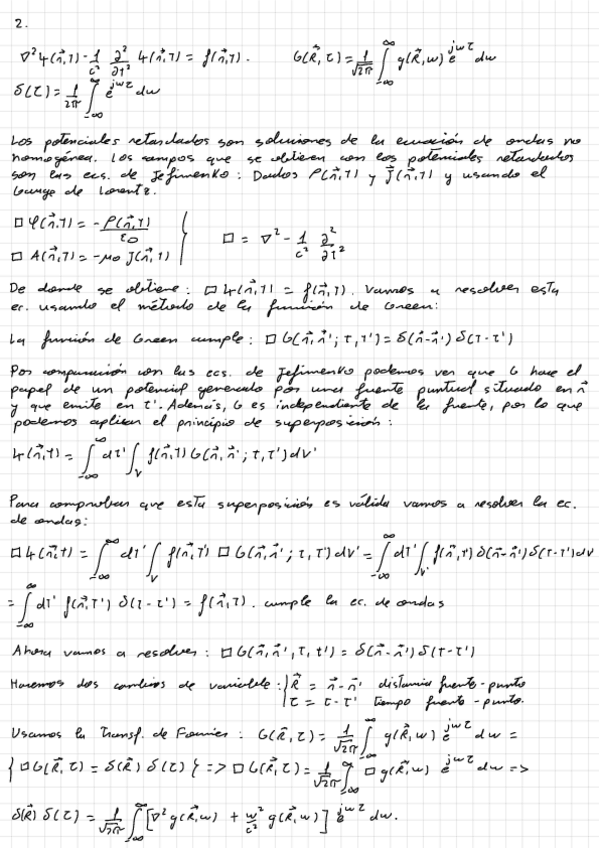 2.
∇²Ψ(r⃗,t) - 1/c² ∂²/∂t² Ψ(r⃗,t) = f(r⃗,t). G(R⃗,τ) = 1/√2π ∫_{-∞}^{∞} g(R⃗,w) e^{jwτ} dw
δ(τ) = 1/2π ∫_{-∞}^{∞} e^{jwτ} dw
Los potenciales retardados son soluciones de la ecuación de ondas no
homogénea. Los campos que se obtienen con los potenciales retardados
son las ecs. de Jefimenko: Dados ρ(r⃗,t) y J⃗(r⃗,t) y usando el
Gauge de Lorentz.
□ φ(r⃗,t) = - ρ(r⃗,t)/ε₀
□ A(r⃗,t) = -μ₀ J(r⃗,t) } □ = ∇² - 1/c² ∂²/∂t²
De donde se obtiene: □ Ψ(r⃗,t) = f(r⃗,t). Vamos a resolver esta
ec. usando el método de la función de Green:
La función de Green cumple: □ G(r⃗,r⃗';t,t') = δ(r⃗-r⃗') δ(t-t')
Por comparación con las ecs. de Jefimenko podemos ver que G hace el
papel de un potencial generado por una fuente puntual situado en r⃗'
y que emite en t'. Además, G es independiente de la fuente, por lo que
podemos aplicar el principio de superposición:
Ψ(r⃗,t) = ∫_{-∞}^{∞} dt' ∫_V f(r⃗,t) G(r⃗,r⃗';t,t') dv'
Para comprobar que esta superposición es válida vamos a resolver la ec.
de ondas:
□ Ψ(r⃗,t) = ∫_{-∞}^{∞} dt' ∫_V f(r⃗,t') □ G(r⃗,r⃗';t,t') dv' = ∫_{-∞}^{∞} dt' ∫_{V'} f(r⃗,t') δ(r⃗-r⃗') δ(t-t') dv
= ∫_{-∞}^{∞} dt' f(r⃗,t') δ(t-t') = f(r⃗,t). cumple la ec. de ondas
Ahora vamos a resolver: □ G(r⃗,r⃗',t,t') = δ(r⃗-r⃗') δ(t-t')
Hacemos dos cambios de variable: { R⃗ = r⃗-r⃗' distancia fuente-punto
τ = t-t' tiempo fuente-punto.
Usamos la Transf. de Fourier: G(R⃗,τ) = 1/√2π ∫_{-∞}^{∞} g(R⃗,w) e^{jwτ} dw =
{ □G(R⃗,τ) = δ(R⃗) δ(τ) } => □ G(R⃗,τ) = 1/√2π ∫_{-∞}^{∞} □ g(R⃗,w) e^{jwτ} dw =>
δ(R⃗) δ(τ) = 1/√2π ∫_{-∞}^{∞} [∇² g(R⃗,w) + w²/c² g(R⃗,w)] e^{jwτ} dw.